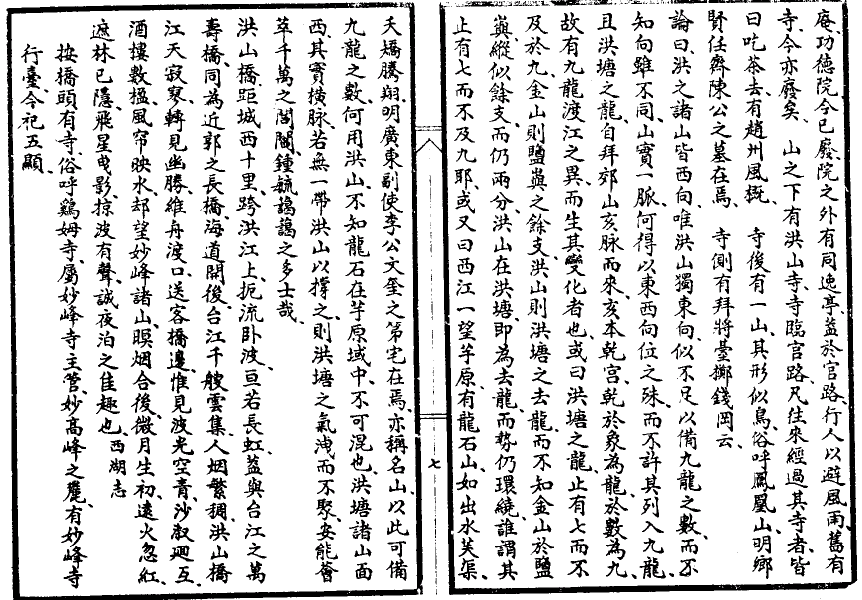 庵、功德院、今已廢、院之外有同逸亭、蓋於官路、行人以避風雨、舊有
寺、今亦廢矣、　山之下有洪山寺、寺臨官路、凡往來經過其寺者、皆
曰吃茶去、有趙州風概　寺後有一山、其形似鳥、俗呼鳳凰山、明鄉
賢任齋陳公之墓在焉、　寺側有拜將臺擲錢岡云、
論曰、洪之諸山皆西向、唯洪山獨東向、似不足以備九龍之數、而不
知向雖不同、山實一脈、何得以東西向位之殊、而不許其列入九龍、
且洪塘之龍、自拜郊山亥脈而來、亥本乾宮、乾於象為龍、於數為九、
故有九龍渡江之異、而生其變化者也、或曰、洪塘之龍、止有七而不
及於九、金山則鹽嶨之餘支、洪山則洪塘之去龍、而不知金山於鹽
嶨、縱似餘支、而仍兩分、洪山在洪塘、即為去龍、而勢仍環繞、誰謂其
止有七而不及九耶、或又曰、西江一望芋原、有龍石山、如出水芙渠、
夭矯騰翔、明廣東副使李公文奎之第宅在焉、亦稱名山、以此可備
九龍之數、何用洪山、不知龍石在芋原域中、不可混也、洪塘諸山面
西、其實橫脈、若無一帶洪山以撐之、則洪塘之氣洩而不聚、安能薈
萃千萬之閭閻、鍾毓藹藹之多士哉、
洪山橋、距城西十里、跨洪江上、扼流臥波、亘若長虹、蓋與台江之萬
壽橋、同為近郭之長橋、海道開後、台江千艘雲集、人烟繁稠、洪山橋
江天寂寥、轉見幽勝、維舟渡口、送客橋邊、惟見波光空青、沙淑迴互、
酒樓數楹、風帘映水、却望妙峰諸山、暝烟合後、微月生初、遠火忽紅、
遮林已隱、飛星曳影、掠波有聲、誠夜泊之佳趣也、西湖志
按橋頭有寺、俗呼鷄姆寺、屬妙峰寺主管、妙高峰之麓、有妙峰寺
行臺、今祀五顯、
七